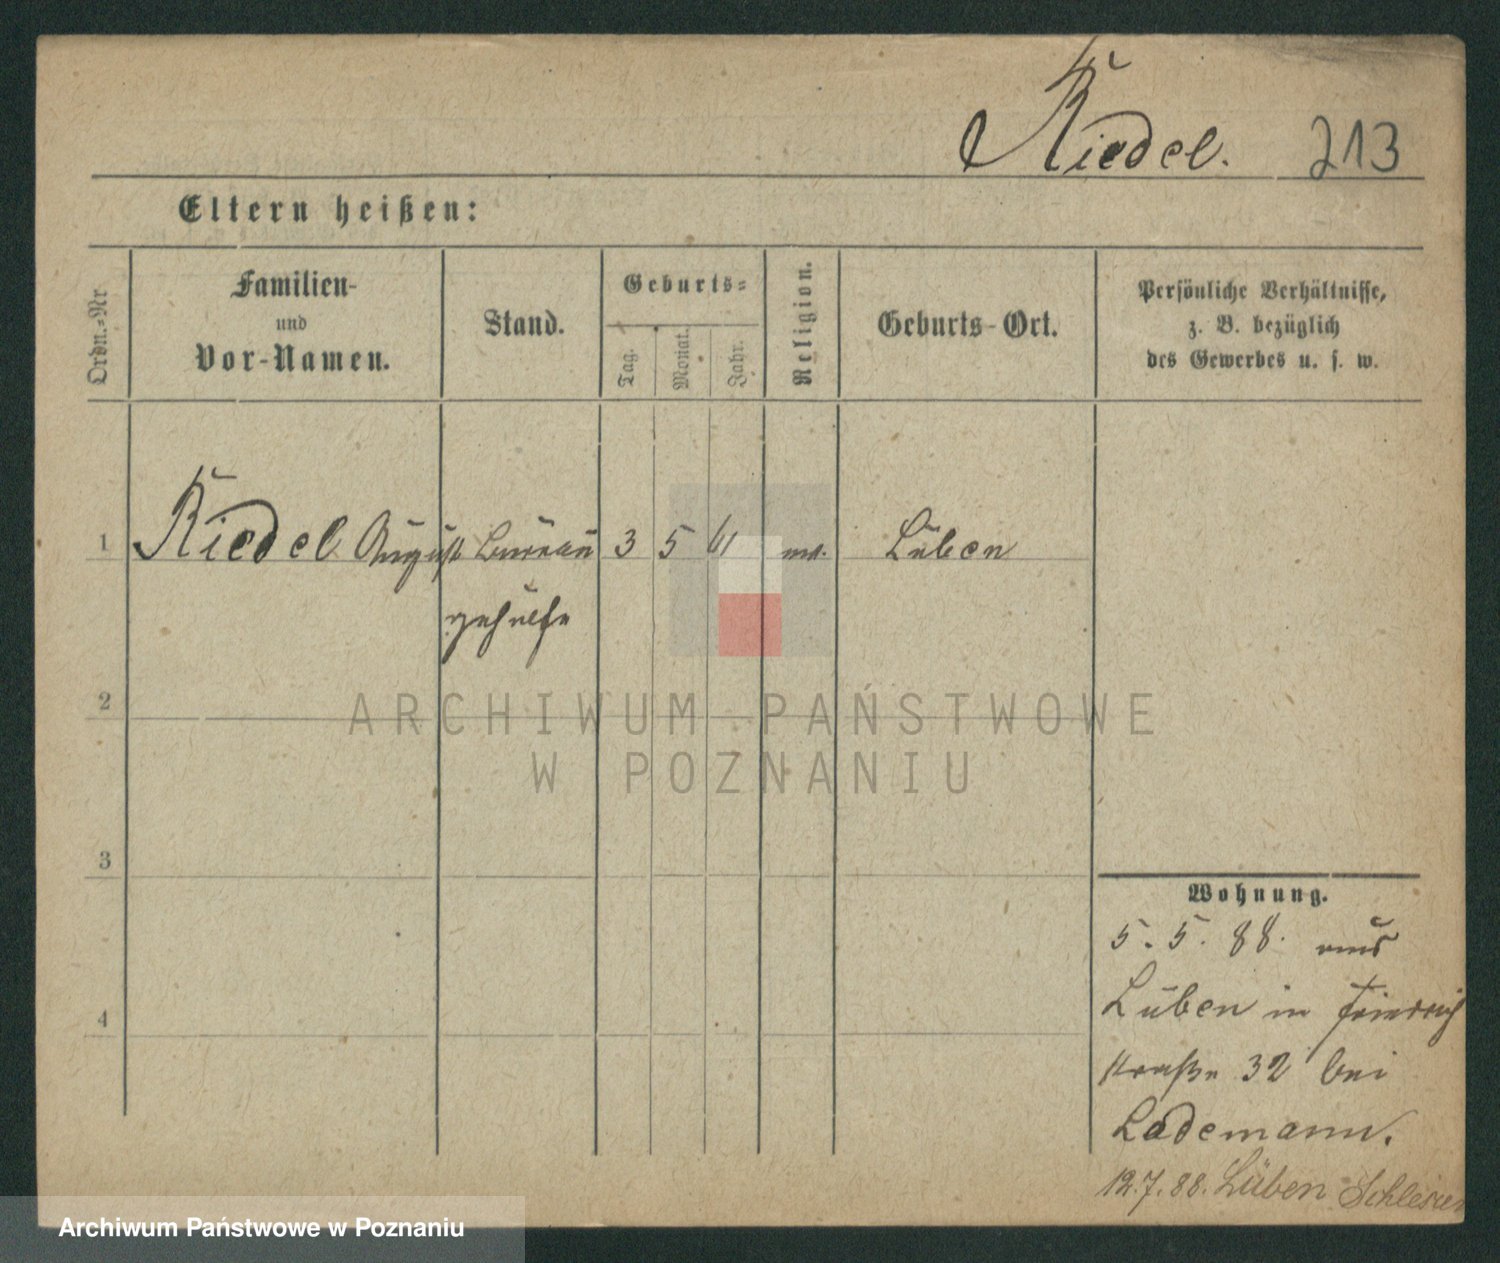 Riedel. 213
Eltern heißen:
Ordn.-Nr
Familien-
und
Vor-Namen.
Stand.
Geburts-
Tag.
Monat.
Jahr.
Religion.
Geburts-Ort.
Persönliche Verhältnisse,
z. B. bezüglich
des Gewerbes u. s. w.
1 Riedel August Bureau 3 5 61 Lüben
gehülfe
ARCHIWUM PAŃSTWOWE
W POZNANIU
2
3
4
Wohnung.
5. 5. 88. aus
Lüben in Friedrich
straße 32 bei
Lademann.
12.7.88. Lüben Schlesien
Archiwum Państwowe w Poznaniu